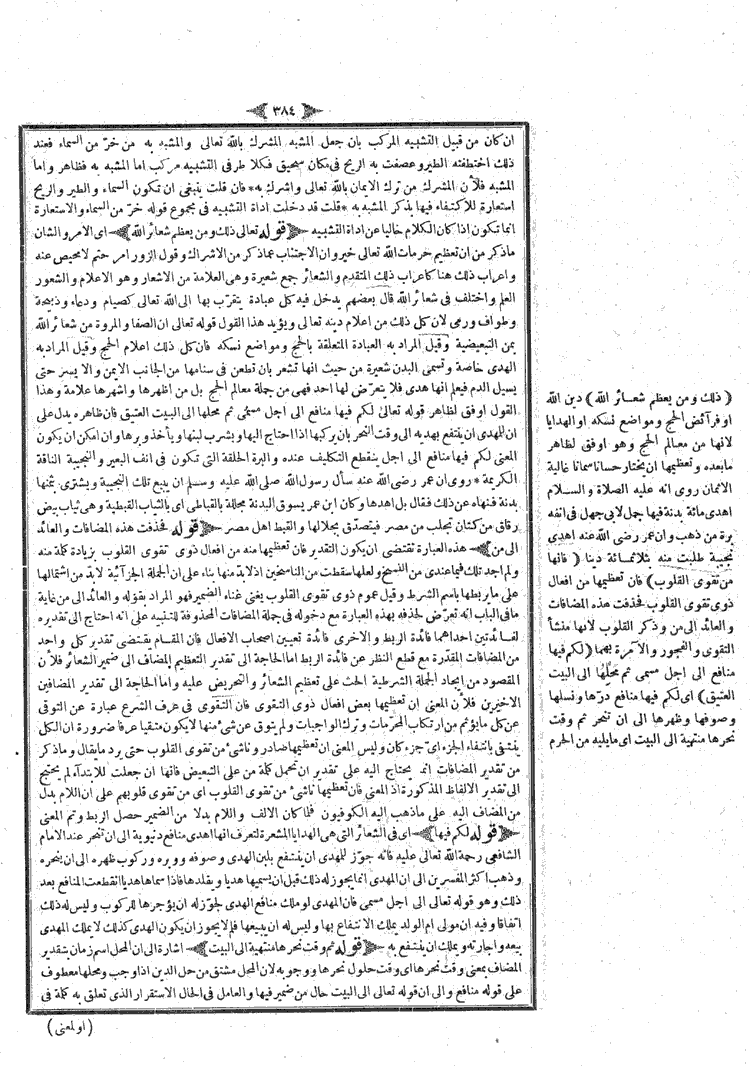 ٣٨٤
ان كان من قبيل التشبيه المركب بان جعل المشبه المشرك بالله تعالى والمشبه به من خرّ من السماء فعند
ذلك اختطفته الطير وعصفت به الريح فى مكان سحيق فكلا طرفى التشبيه مركب اما المشبه به فظاهر واما
المشبه فلأن المشرك من ترك الايمان بالله تعالى واشرك به * فان قلت ينبغى ان تكون السماء والطير والريح
استعارة للاكتفاء فيها بذكر المشبه به * قلت قد دخلت اداة التشبيه فى مجموع قوله خرّ من السماء والاستعارة
انما تكون اذا كان الكلام خاليا عن اداة التشبيه قوله تعالى ذلك ومن يعظم شعائر الله اى الامر والشان
ماذكر من ان تعظيم حرمات الله تعالى خير وان الاجتناب عماذكر من الاشراك وقول الزور امر حتم لامحيص عنه
واعراب ذلك هنا كاعراب ذلك المتقدم والشعائر جمع شعيرة وهى العلامة من الاشعار وهو الاعلام والشعور
العلم واختلف فى شعائر الله قال بعضهم يدخل فيه كل عبادة يتقرب بها الى الله تعالى كصيام ودعاء وذبيحة
وطواف ورمى لان كل ذلك من اعلام دينه تعالى ويؤيد هذا القول قوله تعالى ان الصفا والمروة من شعائر الله
بمن التبعيضية وقيل المراد به العبادة المتعلقة بالحج ومواضع نسكه فان كل ذلك اعلام الحج وقيل المراد به
الهدى خاصة وتسمى البدن شعيرة من حيث انها تشعر بان تطعن فى سنامها من الجانب الايمن والايسر حتى
يسيل الدم فيعلم انها هدى فلا يتعرض لها احد فهى من جملة معالم الحج بل من اظهرها واشهرها علامة وهذا
القول اوفق لظاهر قوله تعالى لكم فيها منافع الى اجل مسمى ثم محلها الى البيت العتيق فان ظاهره يدل على
ان للمهدى ان ينتفع بهديه الى وقت النحر بان يركبها اذا احتاج اليها ويشرب لبنها ويأخذ وبرها وان امكن ان يكون
المعنى لكم فيها منافع الى اجل ينقطع التكليف عنده والبرة الحلقة التى تكون فى انف البعير والنجيبة الناقة
الكريمة * روى ان عمر رضى الله عنه سأل رسول الله صلى الله عليه وسلم ان يبيع تلك النجيبة ويشترى بثمنها
بدنة فنهاه عن ذلك فقال بل اهدها وكان ابن عمر يسوق البدنة مجللة بالقباطى اى بالثياب القبطية وهى ثياب بيض
رقاق من كتان تجلب من مصر فيتصدق بجلالها والقبط اهل مصر قوله فحذفت هذه المضافات والعائد
الى من هذه العبارة تقتضى ان يكون التقدير فان تعظيمها منه من افعال ذوى تقوى القلوب بزيادة كلمة منه
ولم اجد تلك فيما عندى من النسخ ولعلها سقطت من الناسخين اذ لابد منها بناء على ان الجملة الجزآئية لابد من اشتمالها
على ما يربطها باسم الشرط وقيل عموم ذوى تقوى القلوب يغنى غناء الضمير فهو المراد بقوله والعائد الى من غاية
مافى الباب انه تعرّض لحذفه بهذه العبارة مع دخوله فى جملة المضافات المحذوفة للتنبيه على انه احتاج الى تقديره
لفائدتين احداهما فائدة الربط والاخرى فائدة تعيين اصحاب الافعال فان المقام يقتضى تقدير كل واحد
من المضافات المقدرة مع قطع النظر عن فائدة الربط اما الحاجة الى تقدير التعظيم المضاف الى ضمير الشعائر فلأن
المقصود من ايجاد الجملة الشرطية الحث على تعظيم الشعائر والتحريض عليه واما الحاجة الى تقدير المضافين
الاخيرين فلأن المعنى ان تعظيمها بعض افعال ذوى التقوى فان التقوى فى عرف الشرع عبارة عن التوقى
عن كل مايؤثم من ارتكاب المحرّمات وترك الواجبات ولم يتوق عن شئ منها لايكون متقيا عرفا ضرورة ان الكل
ينتفى بانتفاء الجزء اىّ جزء كان وليس المعنى ان تعظيمها صادر وناشئ من تقوى القلوب حتى يرد ما يقال وماذكر
من تقدير المضافات انما يحتاج اليه على تقدير ان تحمل كلمة من على التبعيض فانها ان جعلت للابتدآء لم يحتج
الى تقدير الالفاظ المذكورة اذ المعنى فان تعظيمها ناشئ من تقوى القلوب اى من تقوى قلوبهم على ان اللام بدل
من المضاف اليه على ماذهب اليه الكوفيون فلما كان الالف واللام بدلا من الضمير حصل الربط وتم المعنى
قوله لكم فيها اى فى الشعائر التى هى الهدايا المشعرة لتعرف انها هدى منافع دنيوية الى ان تنحر عند الامام
الشافعى رحمة الله تعالى عليه فانه جوّز للمهدى ان ينتفع بلبن الهدى وصوفه ووبره وركوب ظهره الى ان ينحره
وذهب اكثر المفسرين الى ان المهدى انما يجوز له ذلك قبل ان يسميها هديا ويقلدها فاذا سماها هديا انقطعت المنافع بعد
ذلك وهو قوله تعالى الى اجل مسمى فان المهدى لو ملك منافع الهدى لجوّز له ان يؤجرها للركوب وليس له ذلك
اتفاقا وفيه ان مولى ام الولد يملك الانتفاع بها وليس له ان يبيعها فلم لايجوز ان يكون الهدى كذلك لايملك المهدى
بيعه واجارته ويملك ان ينتفع به قوله ثم وقت نحرها منتهية الى البيت اشارة الى ان المحل اسم زمان بتقدير
المضاف بمعنى وقت نحرها اى وقت حلول نحرها ووجوبه لان المحل مشتق من حل الدين اذا وجب ومحلها معطوف
على قوله منافع والى ان قوله تعالى الى البيت حال من ضمير فيها والعامل فى الحال الاستقرار الذى تعلق به كلمة فى
(اولمعنى)
(ذلك ومن يعظم شعائر الله) دين الله
او فرآئض الحج ومواضع نسكه او الهدايا
لانها من معالم الحج وهو اوفق لظاهر
مابعده وتعظيمها ان يختار حسانا سمانا غالية
الاثمان روى انه عليه الصلاة والسلام
اهدى مائة بدنة فيها جمل لابى جهل فى انفه
برة من ذهب وان عمر رضى الله عنه اهدى
نجيبة طلبت منه بثلاثمائة دينار (فانها
من تقوى القلوب) فان تعظيمها من افعال
ذوى تقوى القلوب فحذفت هذه المضافات
والعائد الى من وذكر القلوب لانها منشأ
التقوى والفجور والآمرة بهما (لكم فيها
منافع الى اجل مسمى ثم محلها الى البيت
العتيق) اى لكم فيها منافع درّها ونسلها
وصوفها وظهرها الى ان تنحر ثم وقت
نحرها منتهية الى البيت اى مايليه من الحرم